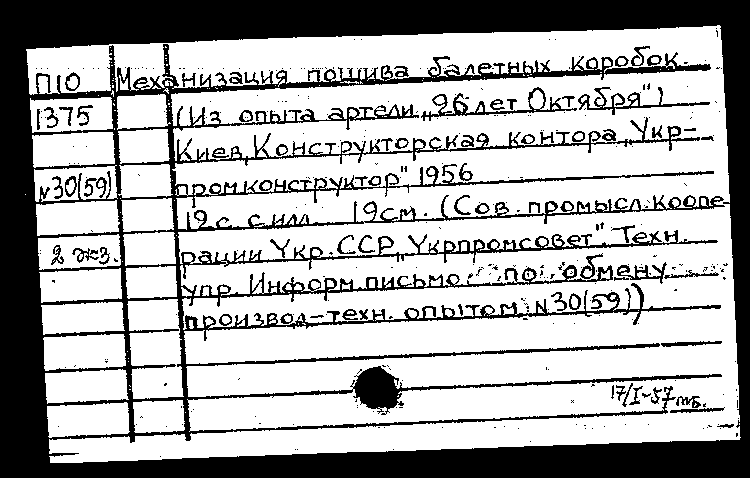 П10 Механизация пошива балетных коробок.
1375 (Из опыта артели „26 лет Октября")
Киев, Конструкторская контора „Укр-
N30(59) промконструктор", 1956
12 с. с илл. 19см. (Сов. промысл. коопе-
2 экз. рации Укр. ССР „Укрпромсовет". Техн.
упр. Информ. письмо по обмену
производ-техн. опытом N30(59))
17/I-57